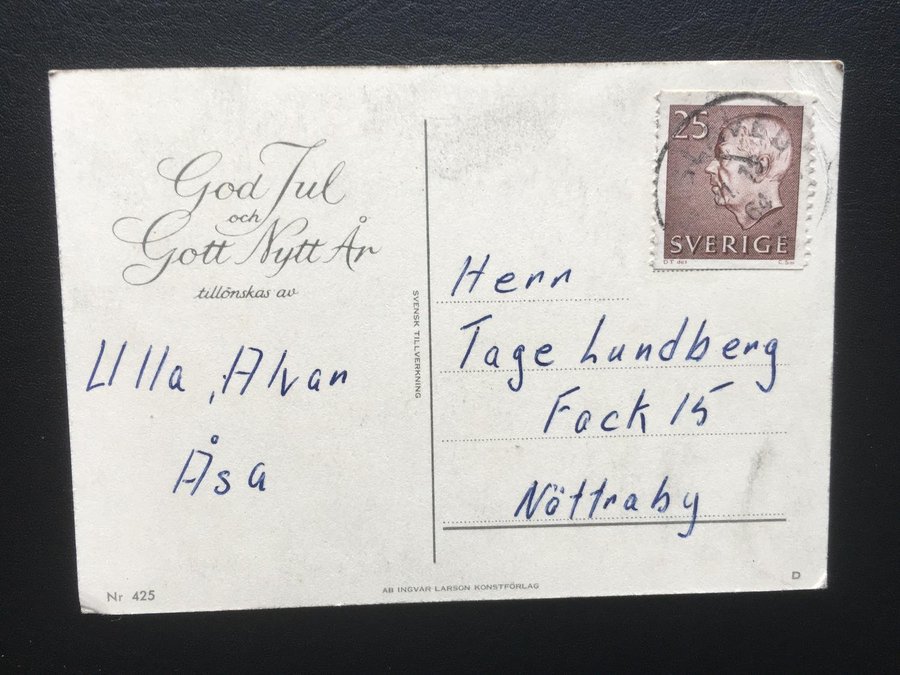 God Jul
och
Gott Nytt År
tillönskas av
Ulla, Alvar
Åsa
Nr 425
SVENSK TILLVERKNING
AB INGVAR LARSON KONSTFÖRLAG
25
SVERIGE
D.T del
C.S sc
Herr
Tage Lundberg
Fack 15
Nättraby
D